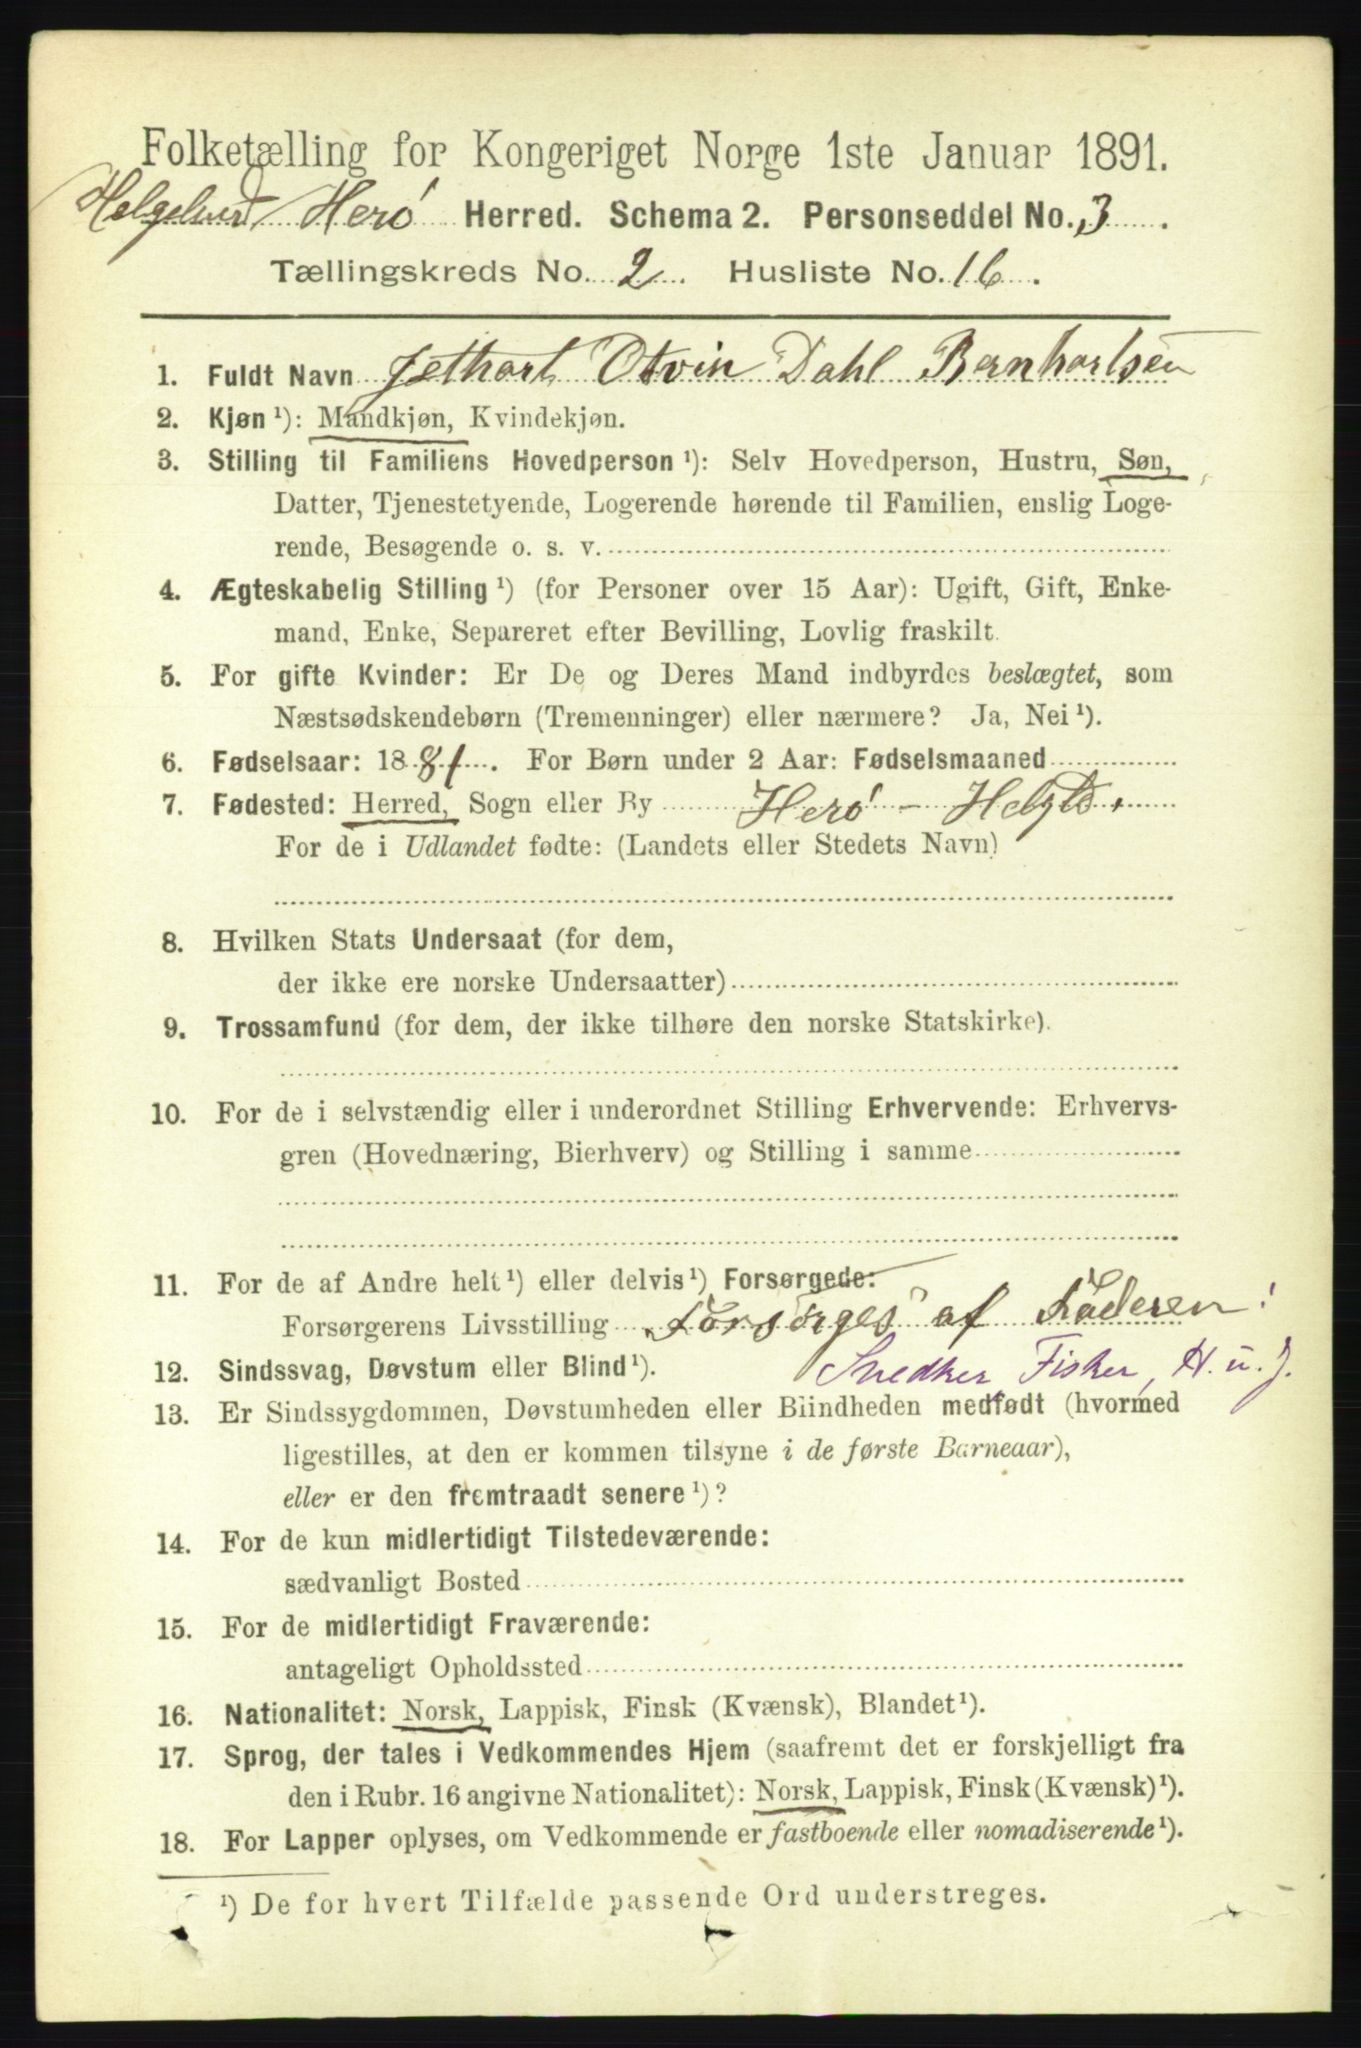 Folketælling for Kongeriget Norge 1ste Januar 1891.
Helgeland Herö Herred. Schema 2. Personseddel No. 3.
Tællingskreds No. 2. Husliste No. 16.
1. Fuldt Navn Jethart Otvin Dahl Bernhartsen
2. Kjøn ¹): Mandkjøn, Kvindekjøn.
3. Stilling til Familiens Hovedperson ¹): Selv Hovedperson, Hustru, Søn,
Datter, Tjenestetyende, Logerende hørende til Familien, enslig Loge-
rende, Besøgende o. s. v.
4. Ægteskabelig Stilling ¹) (for Personer over 15 Aar): Ugift, Gift, Enke-
mand, Enke, Separeret efter Bevilling, Lovlig fraskilt.
5. For gifte Kvinder: Er De og Deres Mand indbyrdes beslægtet, som
Næstsødskendebørn (Tremenninger) eller nærmere? Ja, Nei ¹).
6. Fødselsaar: 1881. For Børn under 2 Aar: Fødselsmaaned
7. Fødested: Herred, Sogn eller By Herö - Helgld.
For de i Udlandet fødte: (Landets eller Stedets Navn)
8. Hvilken Stats Undersaat (for dem,
der ikke ere norske Undersaatter)
9. Trossamfund (for dem, der ikke tilhøre den norske Statskirke).
10. For de i selvstændig eller i underordnet Stilling Erhvervende: Erhvervs-
gren (Hovednæring, Bierhverv) og Stilling i samme
11. For de af Andre helt ¹) eller delvis ¹) Forsørgede:
Forsørgerens Livsstilling Forsörges af Faderen!
12. Sindssvag, Døvstum eller Blind ¹). Snedker, Fisker, H. u. J.
13. Er Sindssygdommen, Døvstumheden eller Blindheden medfødt (hvormed
ligestilles, at den er kommen tilsyne i de første Barneaar),
eller er den fremtraadt senere ¹)?
14. For de kun midlertidigt Tilstedeværende:
sædvanligt Bosted
15. For de midlertidigt Fraværende:
antageligt Opholdssted
16. Nationalitet: Norsk, Lappisk, Finsk (Kvænsk), Blandet ¹).
17. Sprog, der tales i Vedkommendes Hjem (saafremt det er forskjelligt fra
den i Rubr. 16 angivne Nationalitet): Norsk, Lappisk, Finsk (Kvænsk) ¹).
18. For Lapper oplyses, om Vedkommende er fastboende eller nomadiserende ¹).
¹) De for hvert Tilfælde passende Ord understreges.